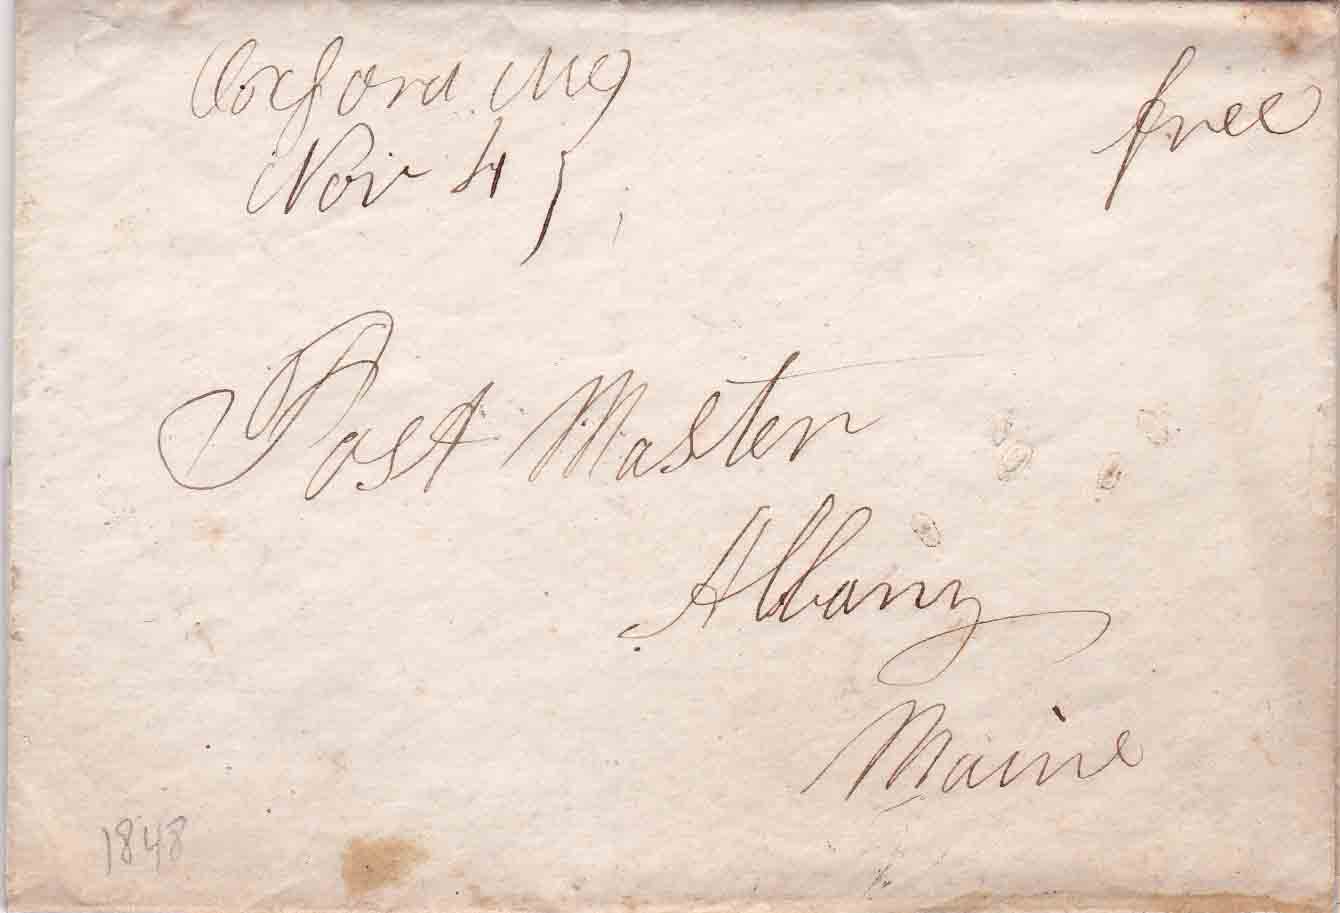 Oxford Me
free
Nov 4
Post Master
Albany
Maine
1848